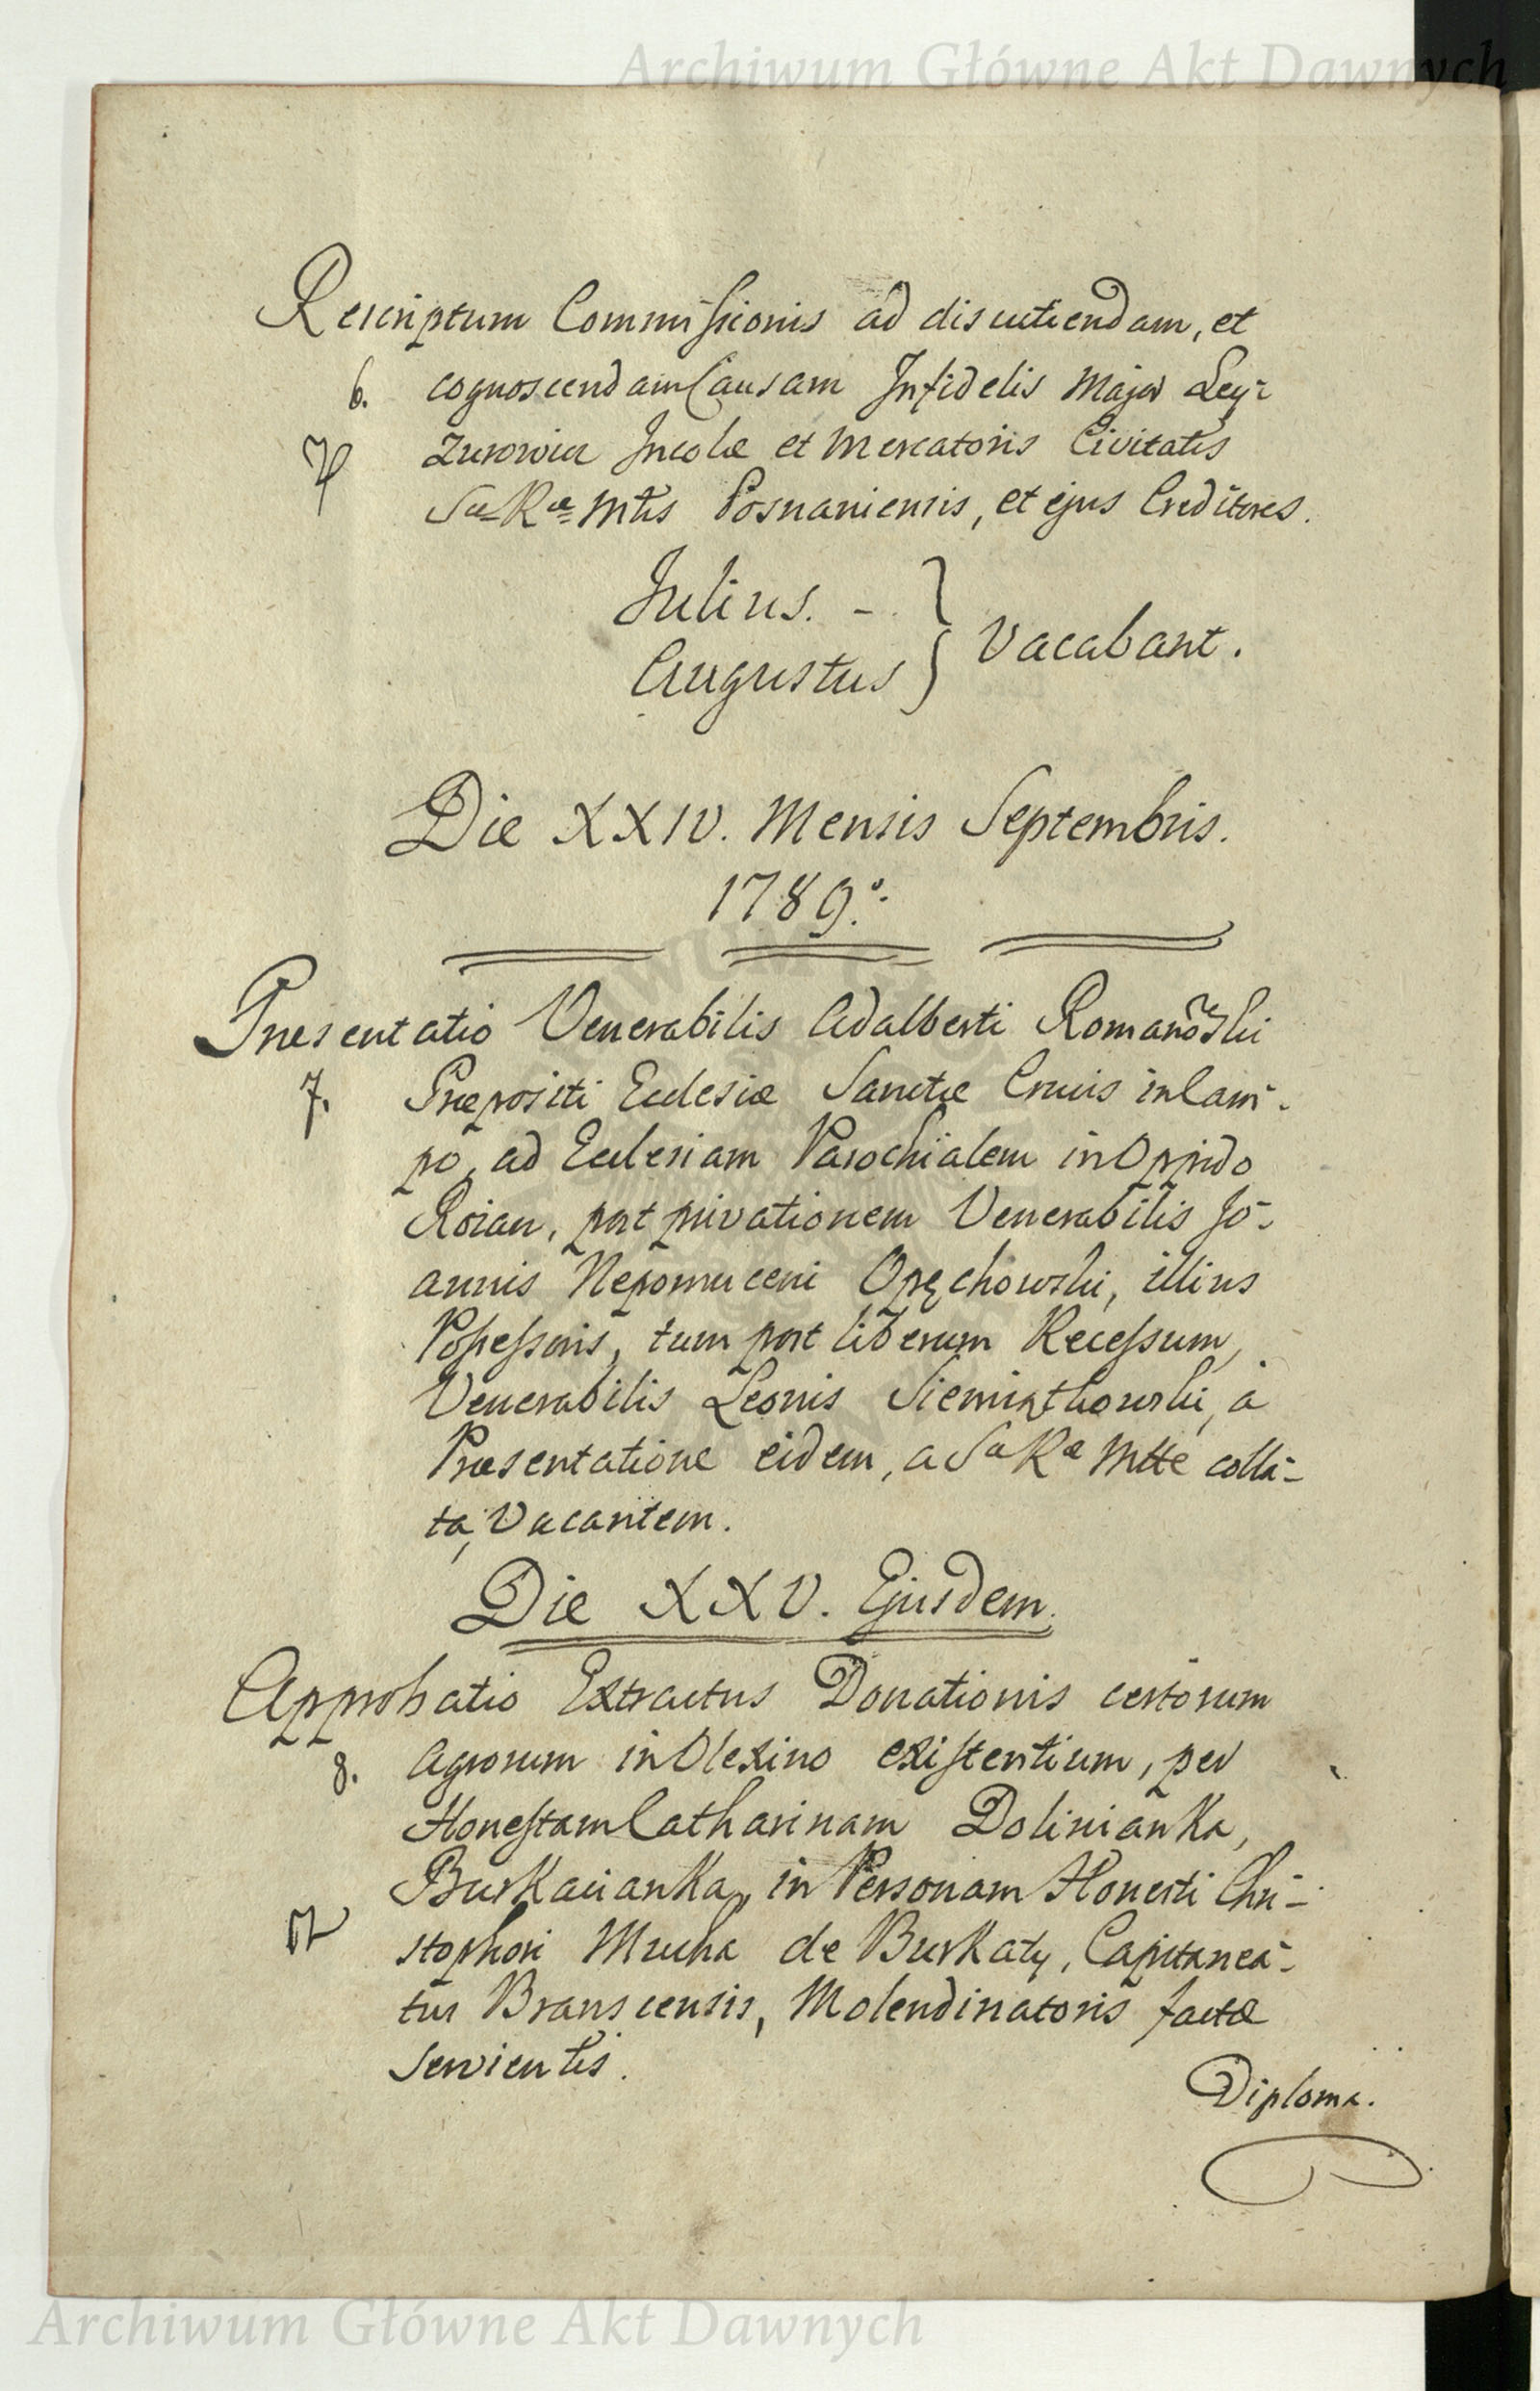 Archiwum Główne Akt Dawnych
Rescriptum Commissionis ad discutiendam, et
6. cognoscendam Causam Infidelis Major Ley-
zurowicz Incolæ et Mercatoris Civitatis
Sæ Ræ Mtis Posnaniensis, et ejus Creditores.
Julius. - } Vacabant.
Augustus
Die XXIV. Mensis Septembris.
1789.
Præsentatio Venerabilis Adalberti Romanowski
7. Præpositi Ecclesiæ Sanctæ Crucis in Cam-
po, ad Ecclesiam Parochialem in Oppido
Rozan, post privationem Venerabilis Jo-
annis Nepomuceni Opęchowski, illius
Possessoris, tum post liberum Recessum,
Venerabilis Leonis Siemiątkowski, a
Præsentatione eidem, a Sa Ra Mtte colla-
ta, Vacantem.
Die XXV. Ejusdem.
Approbatio Extractus Donationis certorum
8. Agrorum in Olexino existentium, per
Honestam Catharinam Dolinianka,
Burkacianka, in Personam Honesti Chri-
stophori Mucha de Burkaty, Capitanea-
tus Branscensis, Molendinatoris factæ
servientis.
Diploma.
Archiwum Główne Akt Dawnych